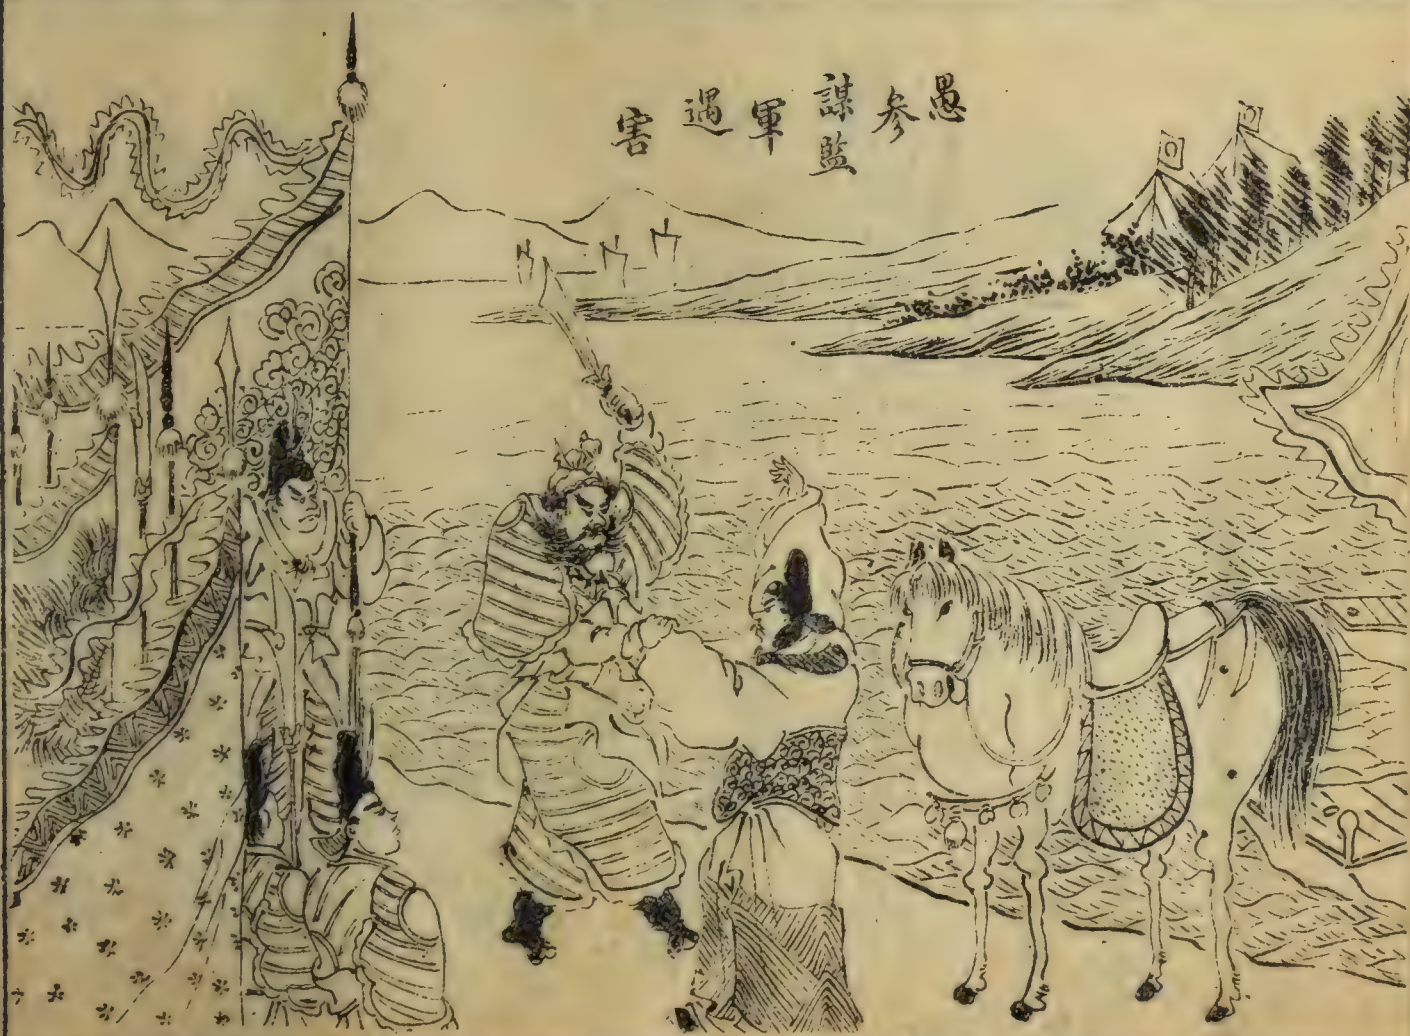 愚参謀監軍遇害